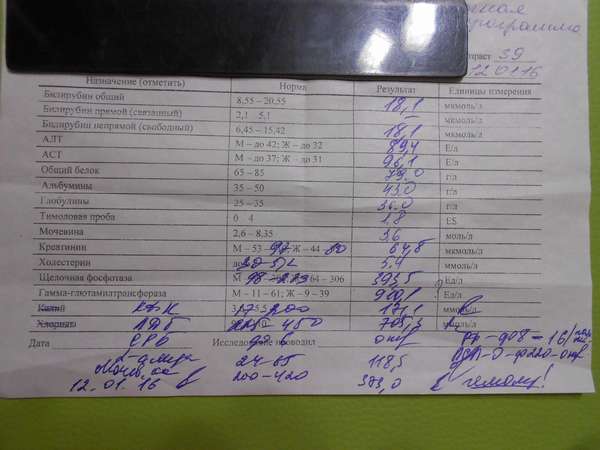 рограмма
зраст 39
12.01.16
Назначение (отметить) Норма Результат Единицы измерения
Билирубин общий 8,55 – 20,55 18,1 мкмоль/л
Билирубин прямой (связанный) 2,1 5,1 – мкмоль/л
Бидирубин непрямой (свободный) 6,45 – 15,42 18,1 мкмоль/л
АЛТ М – до 42; Ж – до 32 89,4 Е/л
АСТ М – до 37; Ж – до 31 96,1 Е/л
Общий белок 65 – 85 79,0 г/л
Альбумины 35 – 50 43,0 г/л
Глобулины 25 – 35 36,0 г/л
Тимоловая проба 0 4 1,8 ES
Мочевина 2,6 – 8,35 3,6 моль/л
Креатинин М – 53 – 97 Ж – 44 80 64,8 мкмоль/л
Холестерин до 5,2 5,4 ммоль/л
Щелочная фосфотаза М 98 – 279 64 – 306 393,5 Ед/л
Гамма-глютамилтрансфераза М – 11 – 61; Ж – 9 – 39 920,1 Ед/л
Калий КФК 200 171,1 ммоль/л
Хлориды ЛДГ 450 705,3 ммоль/л
Дата СРБ Исследование проводил отр
L-амил 118,5
Мочев. к-та 200-420 373,0 гемолиз!
12.01.16